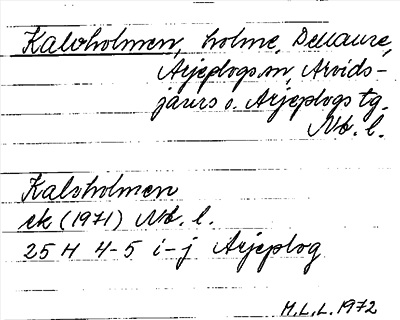 Kalvholmen, holme, Dellaure,
Arjeplogs sn, Arvids-
jaurs o. Arjeplogs tg.
Nb. l.
Kalvholmen
ek (1971) Nb. l.
25 H 4-5 i-j Arjeplog
M.L.L. 1972